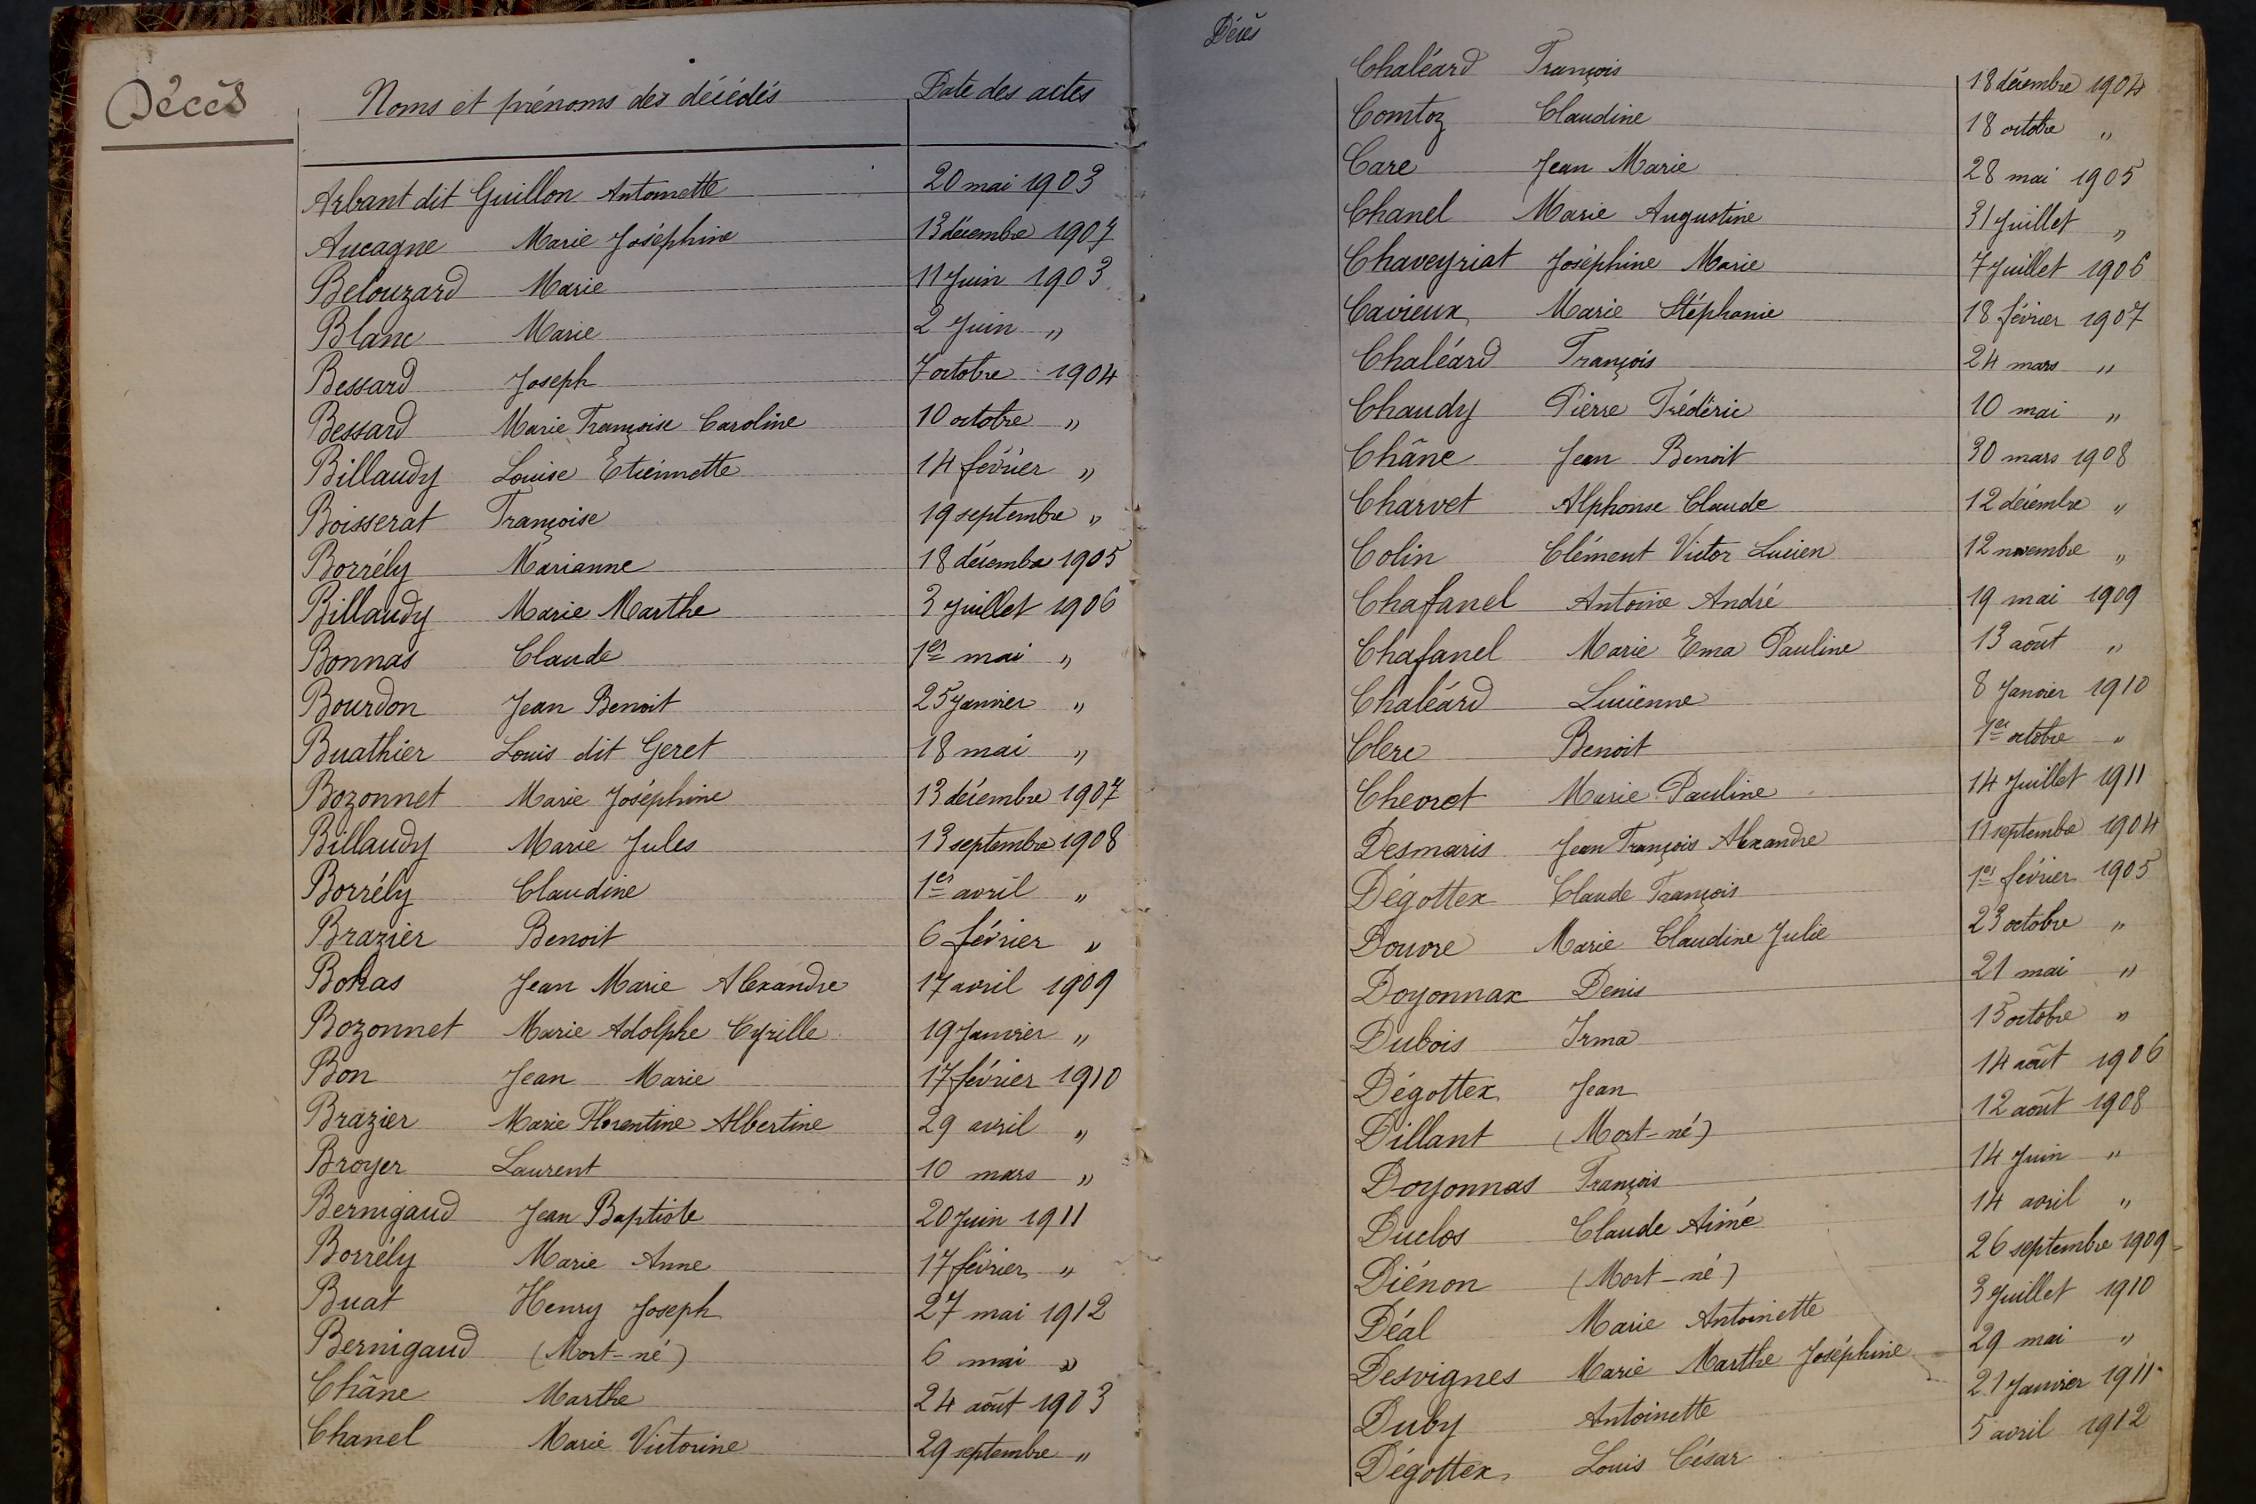 Décès
Noms et prénoms des décédés Date des actes
Arbant dit Guillon Antoinette 20 mai 1903
Aucagne Marie Joséphine 13 décembre 1907
Belouzard Marie 11 Juin 1903
Blanc Marie 2 Juin "
Bessard Joseph 7 octobre 1904
Bessard Marie Françoise Caroline 10 octobre "
Billaudy Louise Etiennette 14 février "
Boisserat Françoise 19 septembre "
Borrély Marianne 18 décembre 1905
Billaudy Marie Marthe 3 Juillet 1906
Bonnas Claude 1er mai "
Bourdon Jean Benoit 25 Janvier "
Buathier Louis dit Geret 18 mai "
Bozonnet Marie Joséphine 13 décembre 1907
Billaudy Marie Jules 13 septembre 1908
Borrély Claudine 1er avril "
Brazier Benoit 6 février "
Bohas Jean Marie Alexandre 17 avril 1909
Bozonnet Marie Adolphe Cyrille 19 Janvier "
Bon Jean Marie 17 février 1910
Brazier Marie Florentine Albertine 29 avril "
Broyer Laurent 10 mars "
Bernigaud Jean Baptiste 20 Juin 1911
Borrély Marie Anne 17 février "
Buat Henry Joseph 27 mai 1912
Bernigaud (Mort-né) 6 mai "
Châne Marthe 24 août 1903
Chanel Marie Victorine 29 septembre "
Décès
Chaléard François 18 décembre 1904
Comtoz Claudine 18 octobre "
Care Jean Marie 28 mai 1905
Chanel Marie Augustine 31 Juillet "
Chaveyriat Joséphine Marie 7 Juillet 1906
Cavieux Marie Stéphanie 18 février 1907
Chaléard François 24 mars "
Chaudy Pierre Frédéric 10 mai "
Châne Jean Benoit 30 mars 1908
Charvet Alphonse Claude 12 décembre "
Colin Clément Victor Lucien 12 novembre "
Chafanel Antoine André 19 mai 1909
Chafanel Marie Ema Pauline 13 août "
Chaléard Lucienne 8 Janvier 1910
Clerc Benoit 1er octobre "
Chevret Marie Pauline 14 Juillet 1911
Desmaris Jean François Alexandre 11 septembre 1904
Dégottex Claude François 1er février 1905
Douvre Marie Claudine Julie 23 octobre "
Doyonnax Denis 21 mai "
Dubois Irma 15 octobre "
Dégottex Jean 14 août 1906
Dillant (Mort-né) 12 août 1908
Doyonnas François 14 Juin "
Duclos Claude Aimé 14 avril "
Diénon (Mort-né) 26 septembre 1909
Déal Marie Antoinette 3 Juillet 1910
Desvignes Marie Marthe Joséphine 29 mai "
Duby Antoinette 21 Janvier 1911
Dégottex Louis César 5 avril 1912